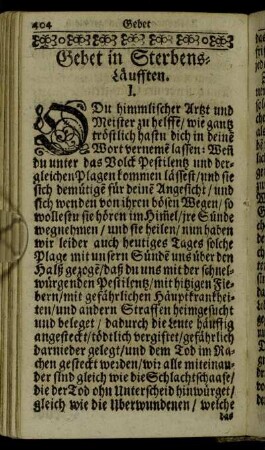 404 Gebet
Gebet in Sterbens-
Läufften.
I.
O Du himmlischer Artzt und
Meister zu helffē / wie gantz
tröstlich hastu dich in deinē
Wort vernemē lassen: Weñ
du unter das Volck Pestilentz und der-
gleichen Plagen kommen lässest / und sie
sich demütigē für deinē Angesicht / und
sich wenden von ihren bösen Wegen / so
wollestu sie hören im Him̃el / jre Sünde
wegnehmen / und sie heilen / nun haben
wir leider auch heutiges Tages solche
Plage mit unsern Sündē uns über den
Halß gezogē / daß du uns mit der schnel-
würgenden Pestilentz / mit hitzigen Fie-
bern / mit gefährlichen Häuptkrankhei-
ten / und andern Straffen heimgesucht
und beleget / dadurch die Leute häuffig
angesteckt / tödtlich vergifftet / gefährlich
darnieder gelegt / und dem Tod im Ra-
chen gesteckt werden / wir alle miteinan-
der sind gleich wie die Schlachtschaafe /
die der Tod ohn Unterscheid hinwürget /
gleich wie die Uberwundenen / welche
das